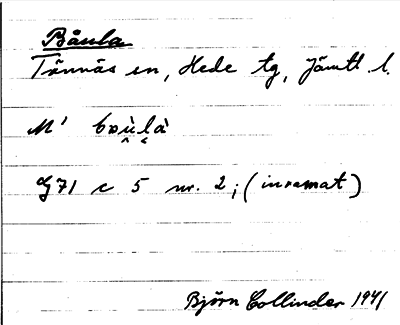 Båula
Tännäs sn, Hede tg, Jämtl l.
M'
G71 c 5 nr. 2; (insamat)
Björn Collinder 1941